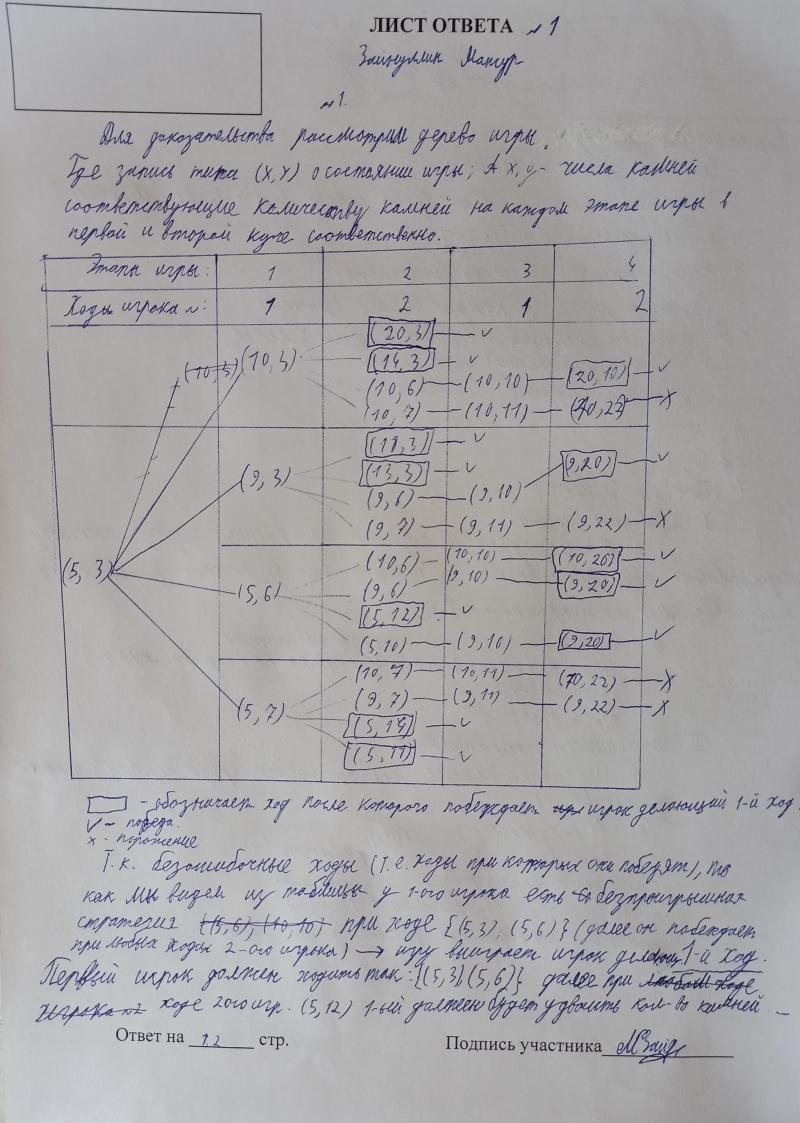 ЛИСТ ОТВЕТА №1
Зайнуллин Мансур
№1.
Для доказательства рассмотрим дерево игры.
Где запись типа (X,Y) о состоянии игры; А x,y - числа камней
соответствующие количеству камней на каждом этапе игры в
первой и второй куче соответственно.
Этапы игры: 1 2 3 4
Ходы игрока №: 1 2 1 2
(20,3) ✓
(10,3) (10,3) (14,3) ✓
(10,6) (10,10) (20,10) ✓
(10,7) (10,11) (10,22) X
(18,3) ✓
(9,3) (13,3) ✓
(9,6) (9,10) (9,20) ✓
(9,7) (9,11) (9,22) X
(5,3) (10,6) (10,10) (10,20) ✓
(5,6) (9,6) (9,10) (9,20) ✓
(5,12) ✓
(5,10) (9,10) (9,20) ✓
(10,7) (10,11) (10,22) X
(5,7) (9,7) (9,11) (9,22) X
(5,14) ✓
(5,11) ✓
- обозначает ход после которого побеждает игрок делающий 1-й ход.
✓ - победа.
x - поражение
Т.к. безошибочные ходы (т.е. ходы при которых они победят), то
как мы видем из таблицы у 1-ого игрока есть безпроигрышная
стратегия (5,6), (10,10) при ходе {(5,3), (5,6)} (далее он побеждает
при любых ходах 2-ого игрока) → игру выиграет игрок делающий 1-й ход.
Первый игрок должен ходить так: {(5,3)(5,6)} далее при любом ходе
Игрока №2 ходе 2ого игр. (5,12) 1-ый должен будет удвоить кол-во камней.
Ответ на 12 стр. Подпись участника